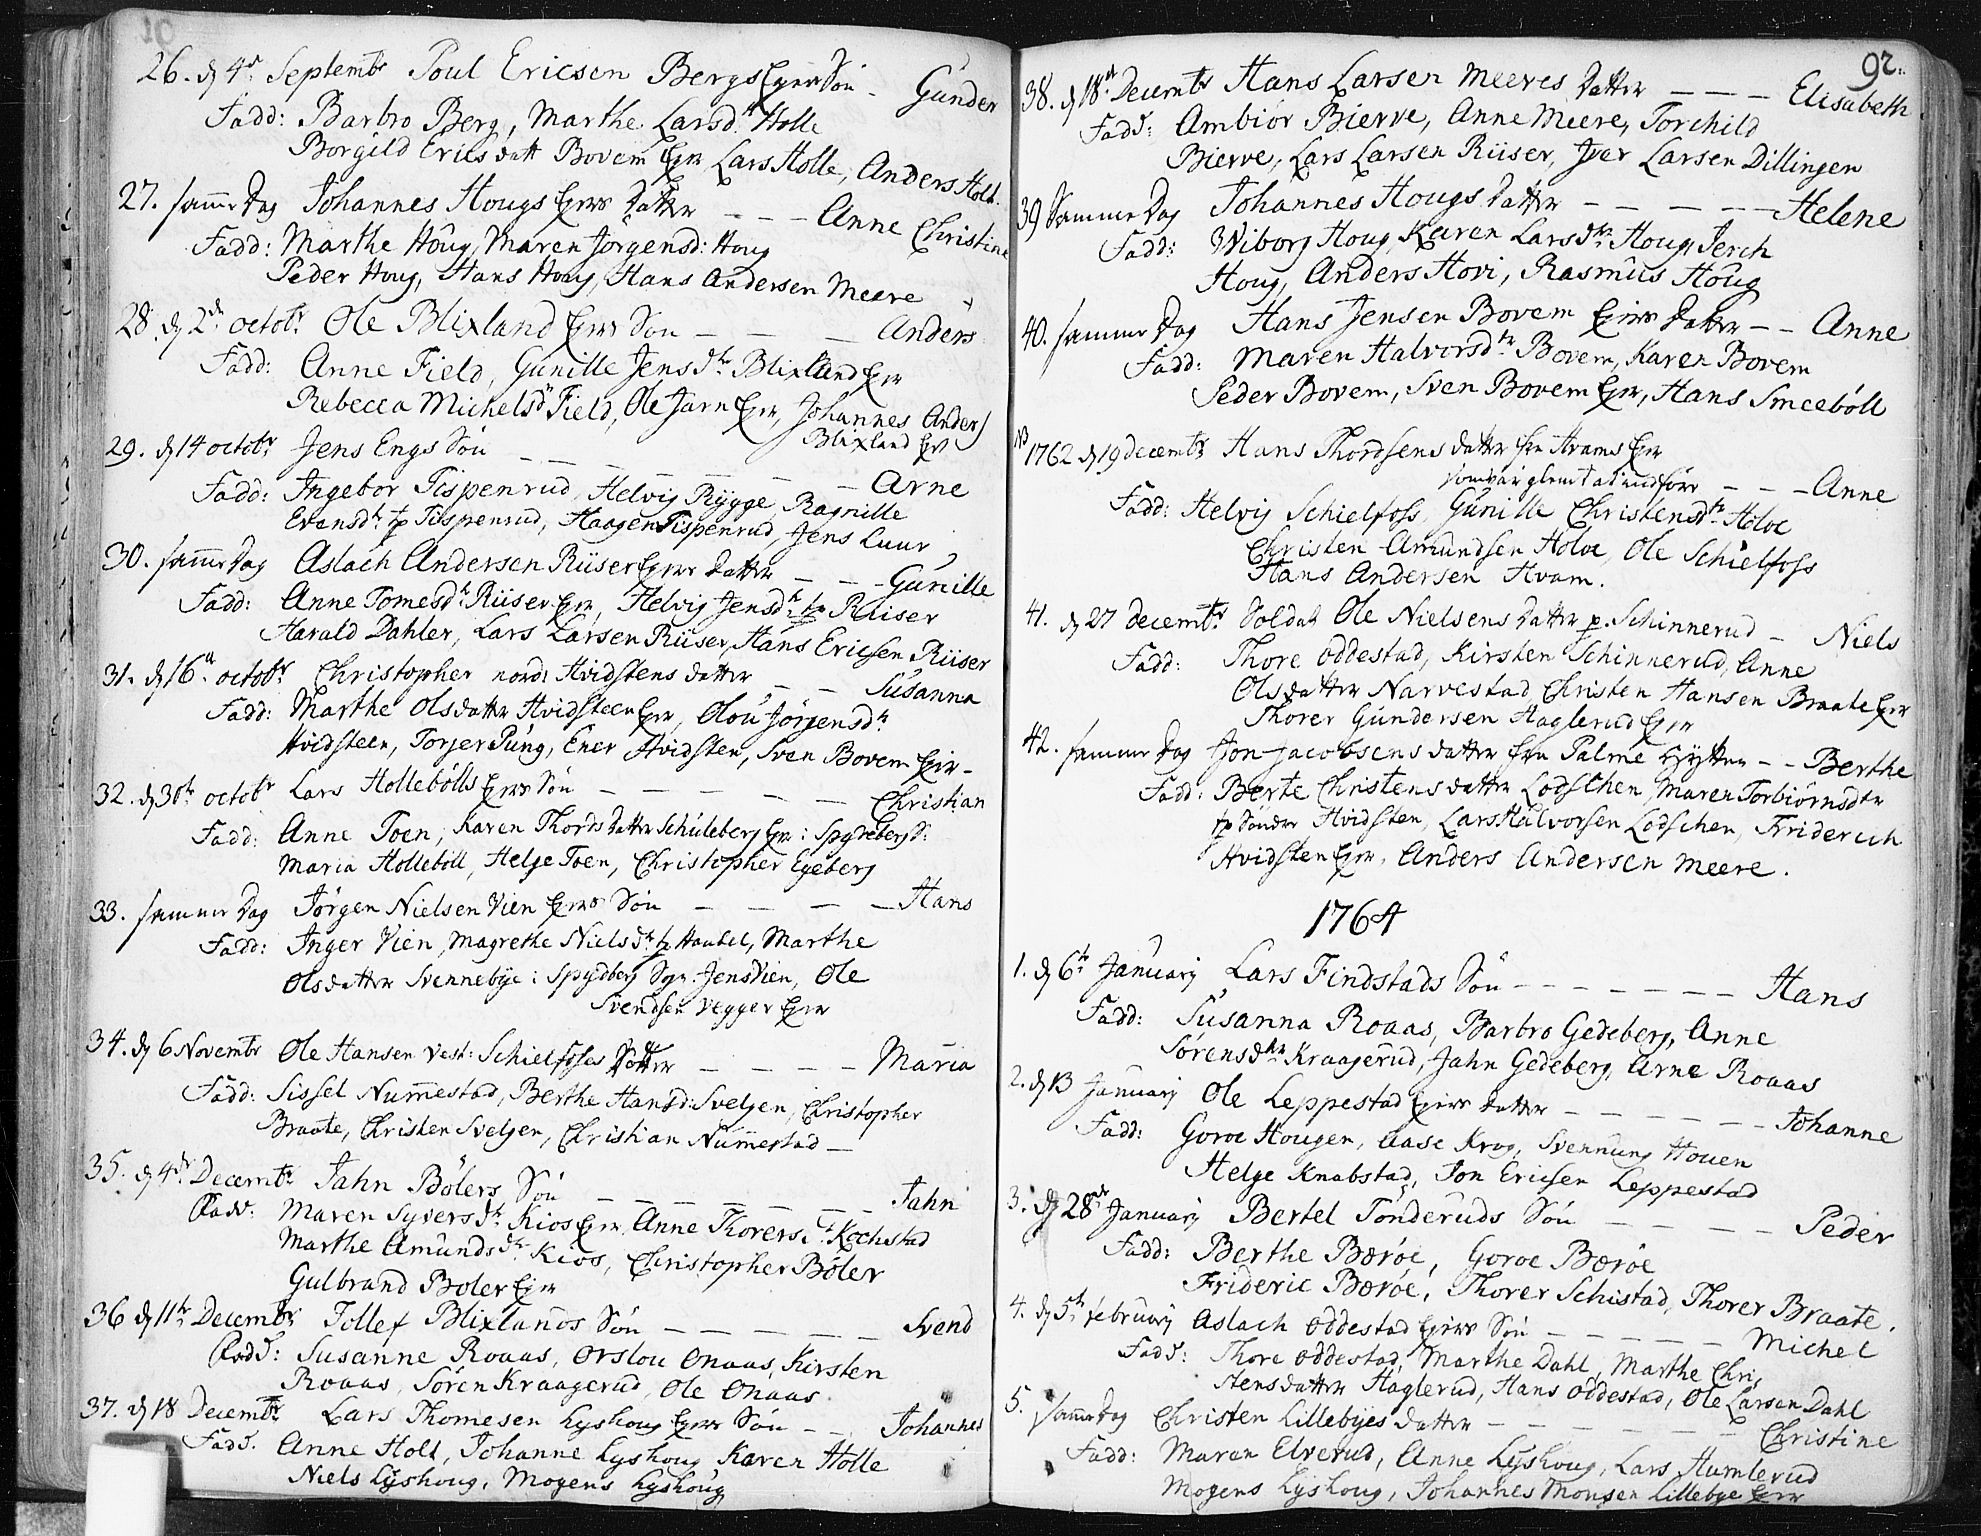 26. d 4de Septembr Poul Ericsen Bergs Ejers Søn - Gunder
Fadd: Barbro Berg, Marthe Larsdtr Holle
Borgild Ericsdatt Bovem Ejer Lars Holle, Anders Holt.
27. samme Dag Johannes Hougs Ejers Datter - - - Anne Christine
Fadd: Marthe Houg, Maren Jørgensd: Houg
Peder Houg, Hans Houg, Hans Andersen Meere
28. d 2den octobr Ole Blixland Ejers Søn - - - Anders
Fadd: Anne Field, Gunille Jensdtr Blixland Ejer
Rebecca Michelsd Field, Ole Jarn Ejer, Johannes Anders
Blixland Ejer
29. d 14 octobr Jens Engs Søn - - - Arne
Fadd: Ingebor Tispenrud, Helvig Rygge, Ragnille
Evensdtr Tispenrud, Haagen Tispenrud, Jens Luur
30. samme Dag Aslach Andersen Riiser Ejers Datter - - - Gunille
Fadd: Anne Tomesdtr Riiser Ejer, Helvig Jensdtr Riiser
Harald Dahler, Lars Larsen Riiser, Hans Ericsen Riiser
31. d 16de octobr Christopher nord: Hvidstens datter - - Susanna
Fadd: Marthe Olsdatter Hvidsteen Ejer, Olou Jørgensdtr
Hvidsteen, Torjer Pung, Ener Hvidsten, Sven Bovem Ejer-
32. d 30te octobr Lars Hollebølls Ejers Søn - - - Christian
Fadd: Anne Toen, Karen Thordsdatter Schuleberg Ejer: Spydeberg S:
Maria Hollebøll, Helge Toen, Christopher Egeberg
33. samme Dag Jørgen Nielsen Vien Ejers Søn - - - Hans
Fadd: Inger Vien, Magrethe Nielsdtr Haubel, Marthe
Olsdatter Svennebye: Spydberg Sgn: Jens Vien, Ole
Svendsen Vegger Ejer
34. d 6 Novembr Ole Hansen Vest: Schielfoses Datter - - - Maria
Fadd: Sissel Nummestad, Berthe Hansd: Svelgen, Christopher
Braate, Christen Svelgen, Christian Nummestad -
35. d 4de Decembr Jahn Bølers Søn - - - Jahn
Fadd: Maren Syversdtr Kios Ejer, Anne Thorersdtr Kochstad
Marthe Amundsdtr Kios, Christopher Bøler
Gulbrand Boler Ejer
36 d 11te Decembr Tollef Blixlands Søn - - - Svend
Fadd: Susanne Roaas, Orslou Onaas, Kirsten
Roaas, Søren Kraagerud, Ole Onaas
37. d 18 Decembr Lars Thomesen Lyshoug Ejers Søn - - Johannes
Fadd. Anne Holt, Johanne Lyshoug Karen Holle
Niels Lyshoug, Mogens Lyshoug
92.
38. d 18de Decembr Hans Larsen Meeres Datter - - - Elisabeth
Fadd: Ambiør Bierve, Anne Meere, Torchild
Bierve, Lars Larsen Riiser, Iver Larsen Dillingen
39 Samme Dag Johannes Hougs Datter - - - Helene
Fadd: Wiborg Houg, Karen Larsdtr Houg, Jerch
Houg, Anders Hovi, Rasmus Houg
40. samme Dag Hans Jensen Bovem Ejers Datter - - Anne
Fadd: Maren Halvorsdtr Bovem, Karen Bovem
Peder Bovem, Sven Bovem Ejer, Hans Smeebøll
NB 1762 d 19 decembr Hans Thordsens datter fra Hvams Ejer
som var glemt at indføre - - - Anne
Fadd: Helvig Schielfoss, Gunille Christensdtr Holoe
Christen Amundsen Holoe, Ole Schielfoss
Hans Andersen Hvam.
41. d 27 decembr Soldat Ole Nielsens Datter p. Schinnerud - Niels
Fadd: Thore Oddestad, Kirsten Schinnerud, Anne
Olsdatter Narvestad, Christen Hansen Braate Ejer
Thorer Gundersen Haglerud Ejer
42. samme Dag Jon Jacobsens datter fra Palme Hytten - - Berthe
Fadd: Berte Christensdatter Lodschen, Maren Torbiørnsdtr
Sønder Hvidsten, Lars Halvorsen Lodschen, Friderich
Hvidsten Ejer, Anders Andersen Meere.
1764
1. d 6te January Lars Findstads Søn - - - Hans
Fadd: Susanna Roaas, Barbro Gedeberg, Anne
Sørensdtr Kraagerud, Jahn Gedeberg, Arne Roaas
2. d 13 January Ole Leppestad Ejers Datter - - - Johanne
Fadd: Goroe Hougen, Aase Krog, Svennung Houen
Helge Knabstad, Jon Ericsen Leppestad
3. d 28de January Bertel Tønderuds Søn - - - Peder
Fadd: Berthe Børøe, Goroe Børøe
Frideric Børøe, Thorer Schistad, Thorer Braate.
4. d 5te february Aslach Oddestad Ejers Søn - - - Michel
Fadd: Thore Oddestad, Marthe Dahl, Marthe Chri-
stensdatter Haglerud, Hans Oddestad, Ole Larsen Dahl
5. samme Dag Christen Lillebyes datter - - - Christine
Fadd: Maren Elverud, Anne Lyshoug, Lars Humlerud
Mogens Lyshoug, Johannes Monsen Lillebye Ejer